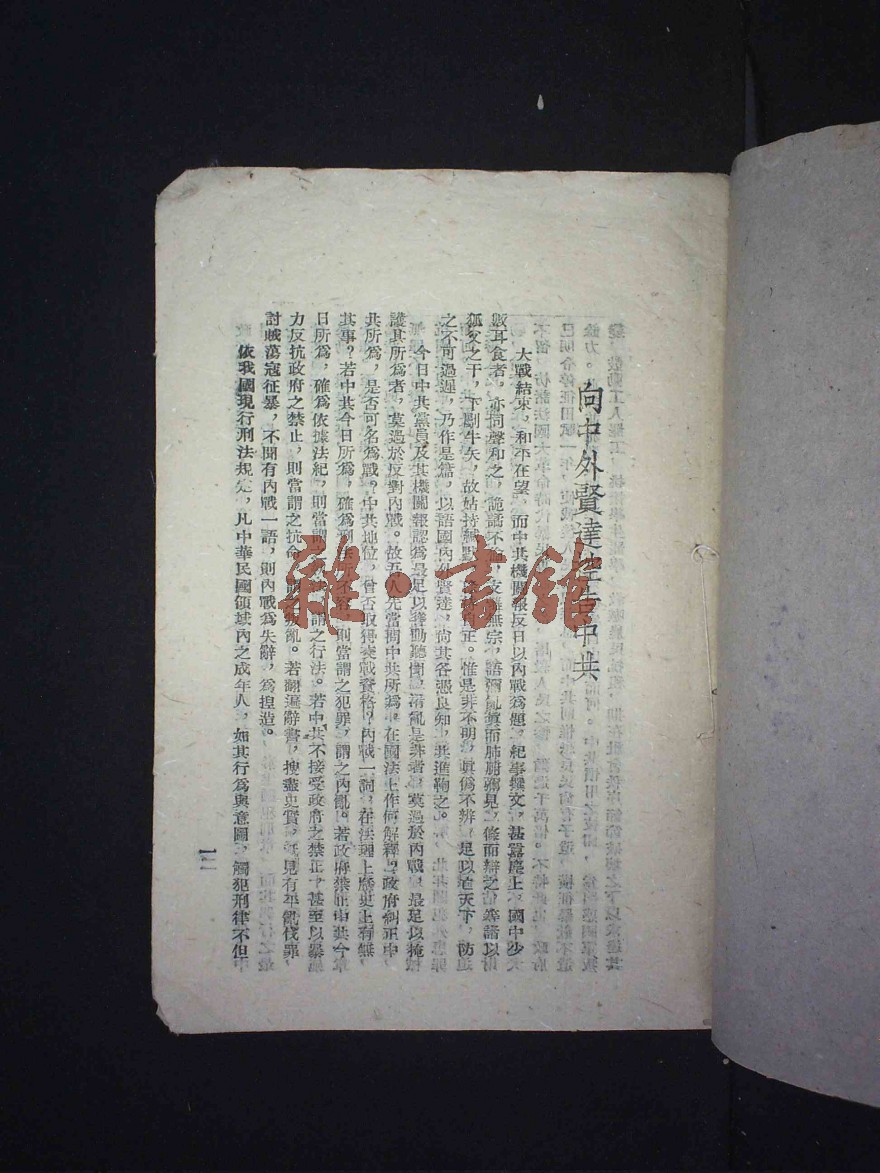 向中外賢達控告中共
大戰結束，和平在望，而中共機關報反日以內戰爲題，紀事撰文，甚囂塵上，國中少
數耳食者，亦同聲和之，詭譎不倫，支蔓無宗，語彌亂眞而肺腑彌見，條而辯之，等諸以
狐父之干，下劚牛矢，故姑持緘默，正。惟是非不明，眞僞不辨，足以淆天下，防
之不可過遲，乃作是篇，以語國內外賢達，尙其各憑良知，共進鞫之。
今日中共黨員及其機關報認爲最足以聳動聽聞，淆亂是非者，莫過於內戰，最足以掩
護其所爲者，莫過於反對內戰。故吾人先當問中共所爲。在國法上作何解釋？政府糾正中
共所爲，是否可名爲戰？中共地位，曾否取得交戰資格？內戰一詞，在法理上歷史上有無
其事？若中共今日所爲，確爲刑法所不容，則當謂之犯罪，謂之內亂。若政府禁止中共今
日所爲，確爲依據法紀，則當謂之行法。若中共不接受政府之禁止，甚至以暴
力反抗政府之禁止，則當謂之抗命，謂之叛亂。若翻遍辭書，搜盡史實，祇見有平亂伐罪，
討賊蕩寇征暴，不聞有內戰一語，則內戰爲失辭，爲揑造。
依我國現行刑法規定，凡中華民國領域內之成年人，如其行爲與意圖，觸犯刑律不但
一
雜·書館